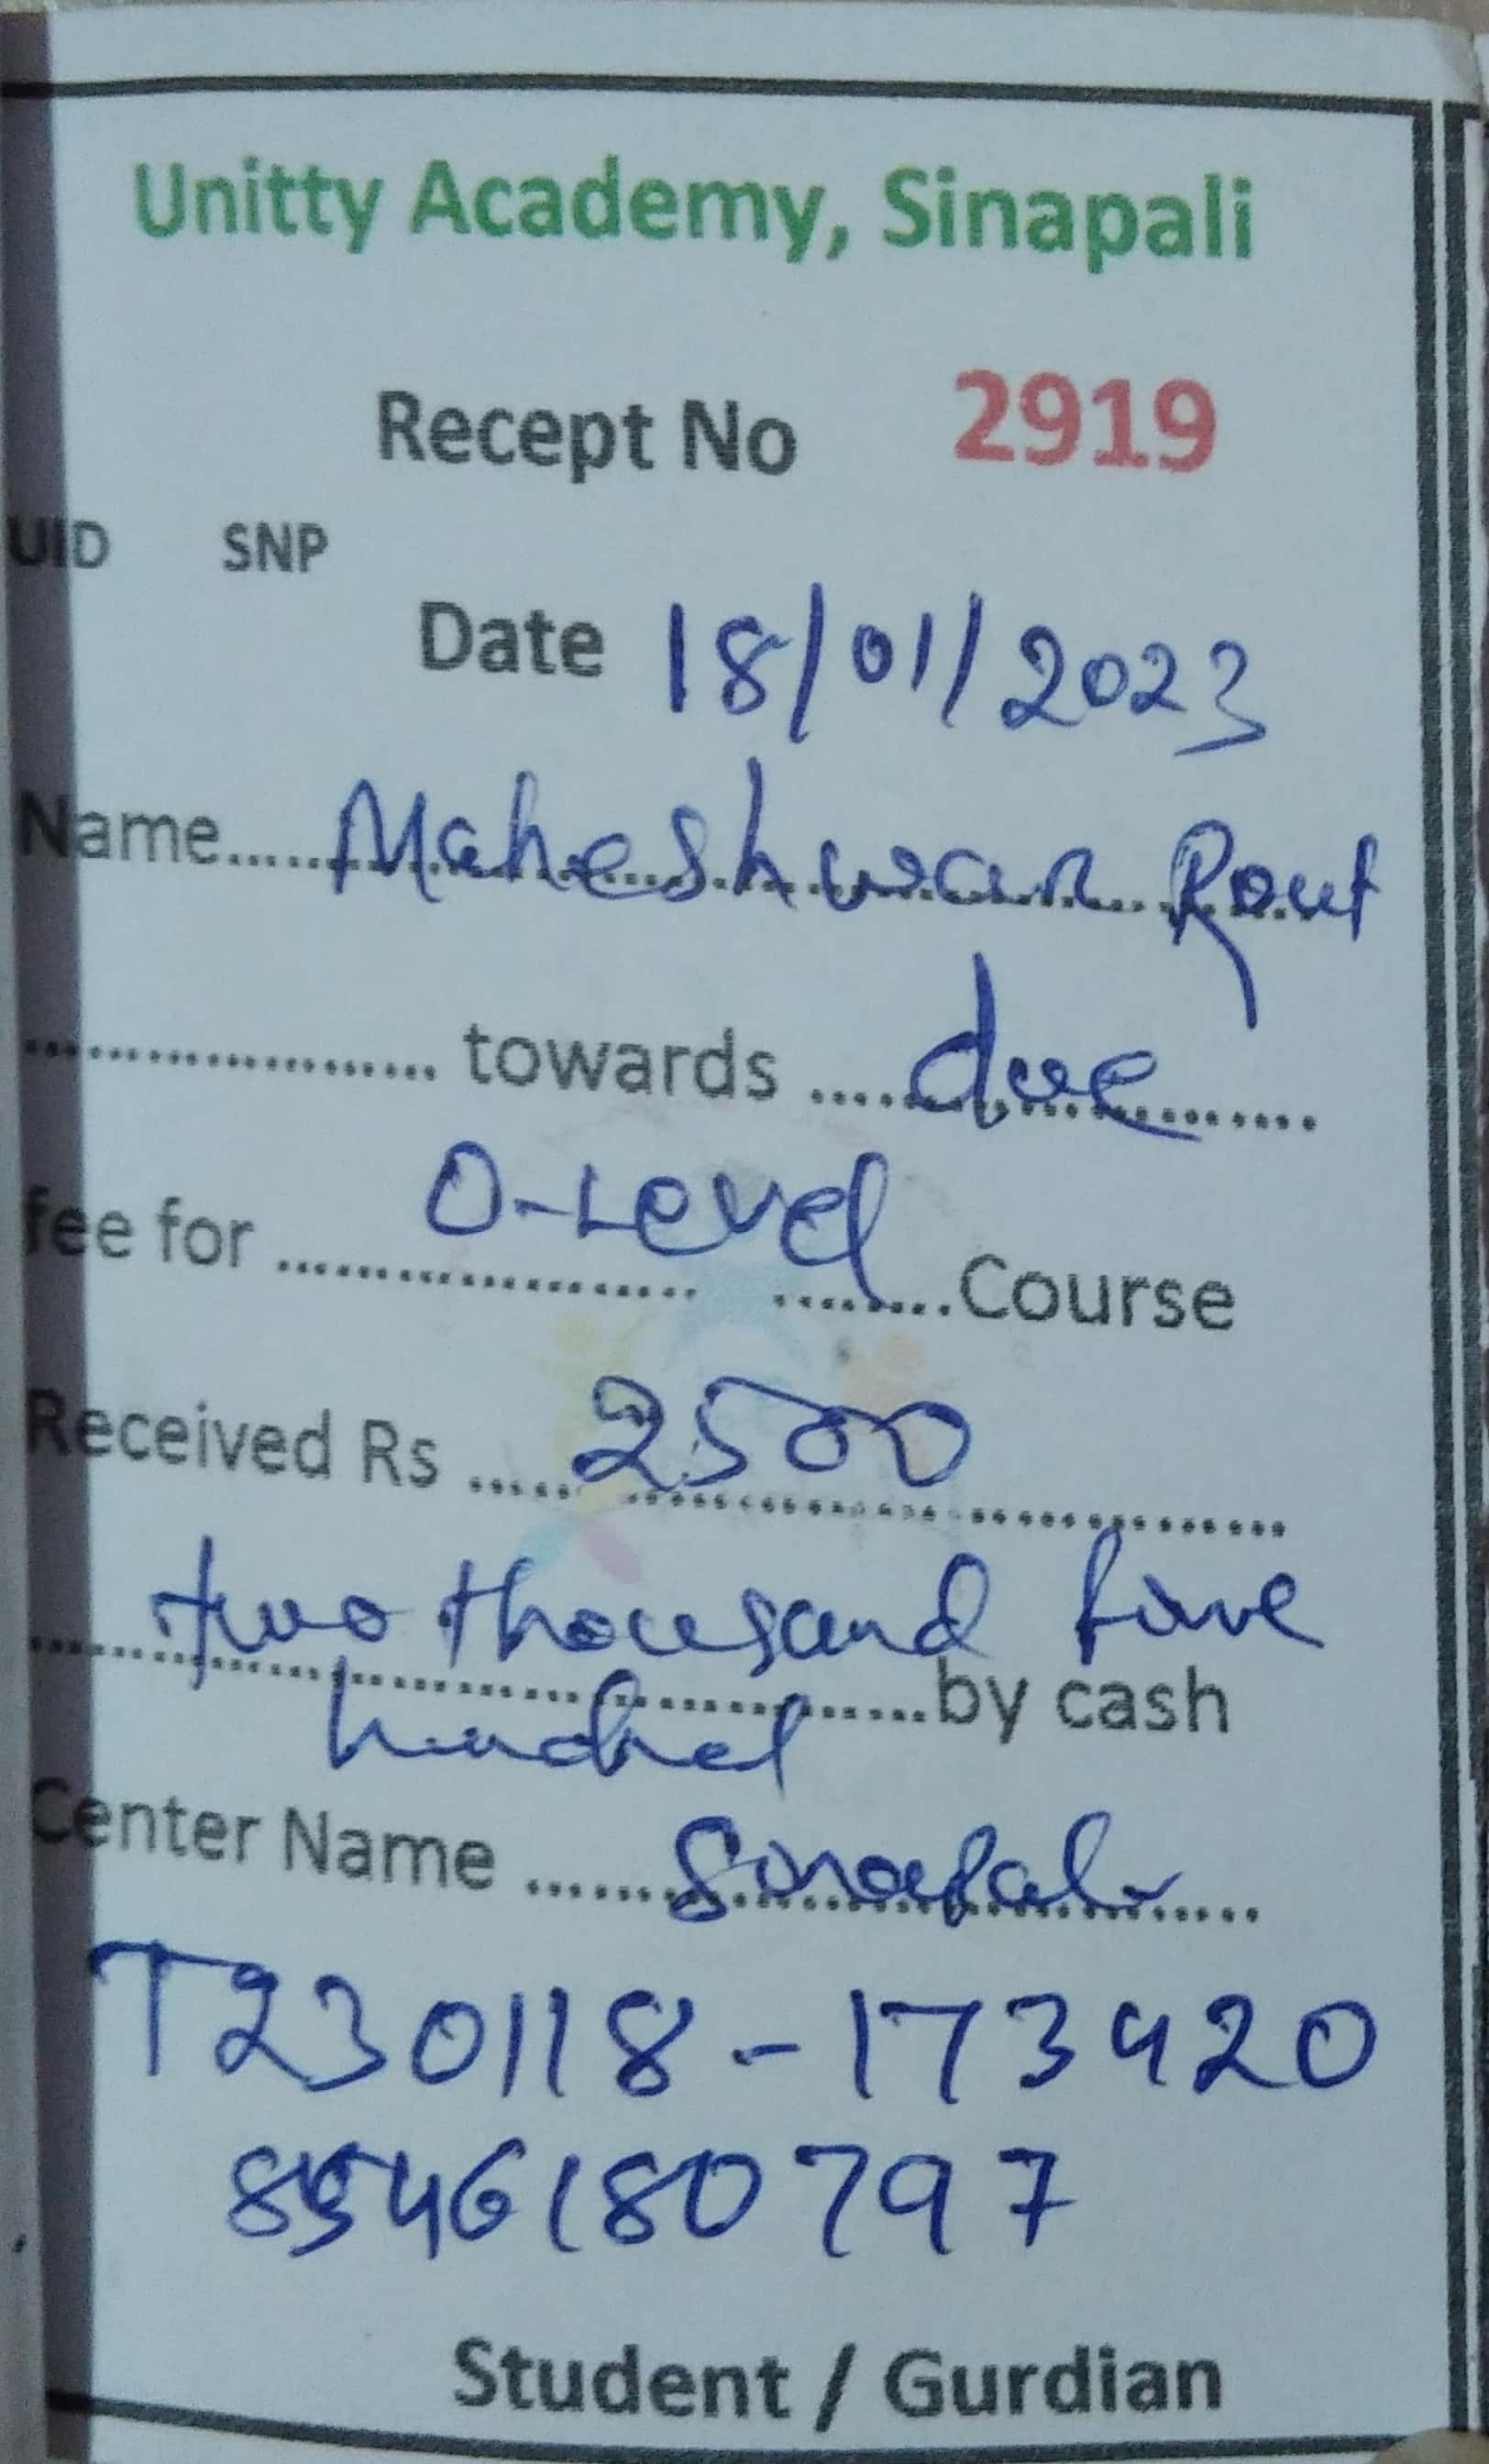 Unitty Academy, Sinapali
Recept No 2919
UID SNP
Date 18/01/2023
Name..... Maheshwar Rout
.................... towards .... due
fee for .................... O-Level ........Course
Received Rs ..... 2500
two thousand five
hundred ..........by cash
Center Name ...... Sinapali
T230118-173420
8546180797
Student / Gurdian